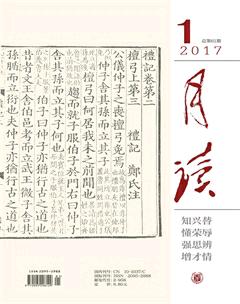 1
2017
月读
知兴替
懂荣辱
强思辨
增才情
禮記卷第二
檀弓上第三 禮記 鄭氏注
公儀仲子之喪檀弓免焉
仲子舍其孫而立其子
檀弓曰何居我未之前聞也
趨而就子服伯子於門右曰仲子
舍其孫而立其子何也伯子曰
仲子亦猶行古之道也
昔者文王舍伯邑考而立武王微子舍其
孫腯而立衍也夫仲子亦猶行古之道也